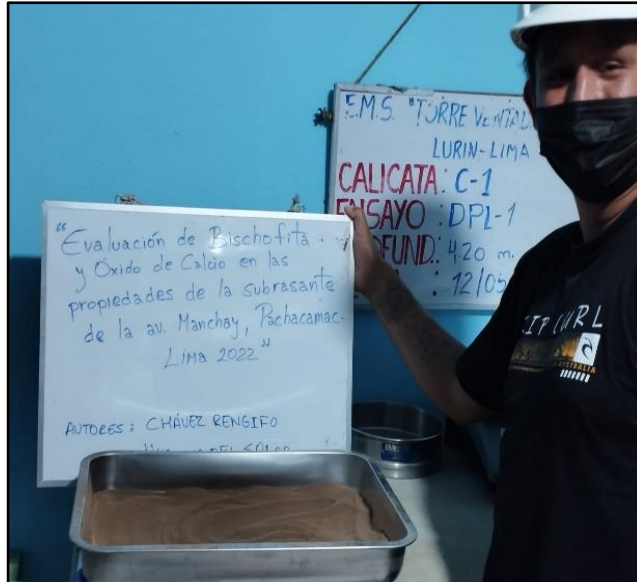 "Evaluación de Bischofita
y Óxido de Calcio en las
propiedades de la subrasante
de la av. Manchay, Pachacamac-
Lima 2022"
AUTORES: CHÁVEZ RENGIFO
E.M.S. "TORRE
LURIN-LIMA
CALICATA: C-1
ENSAYO: DPL-1
4.20 m.
12/05
RIP CURL
AUSTRALIA